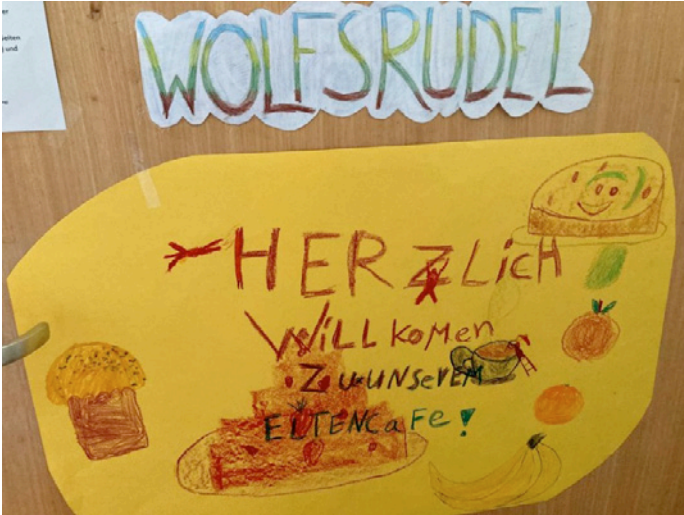 WOLFSRUDEL
HERZLicH
WiLLKOMEN
ZuUNSEREM
ELTENCaFe!